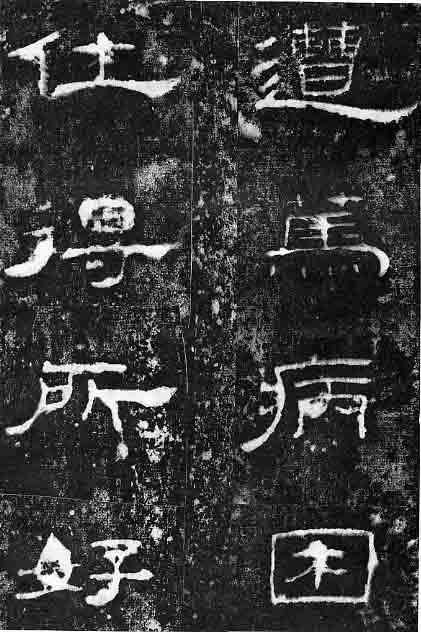 遭馬病困
仕得所好